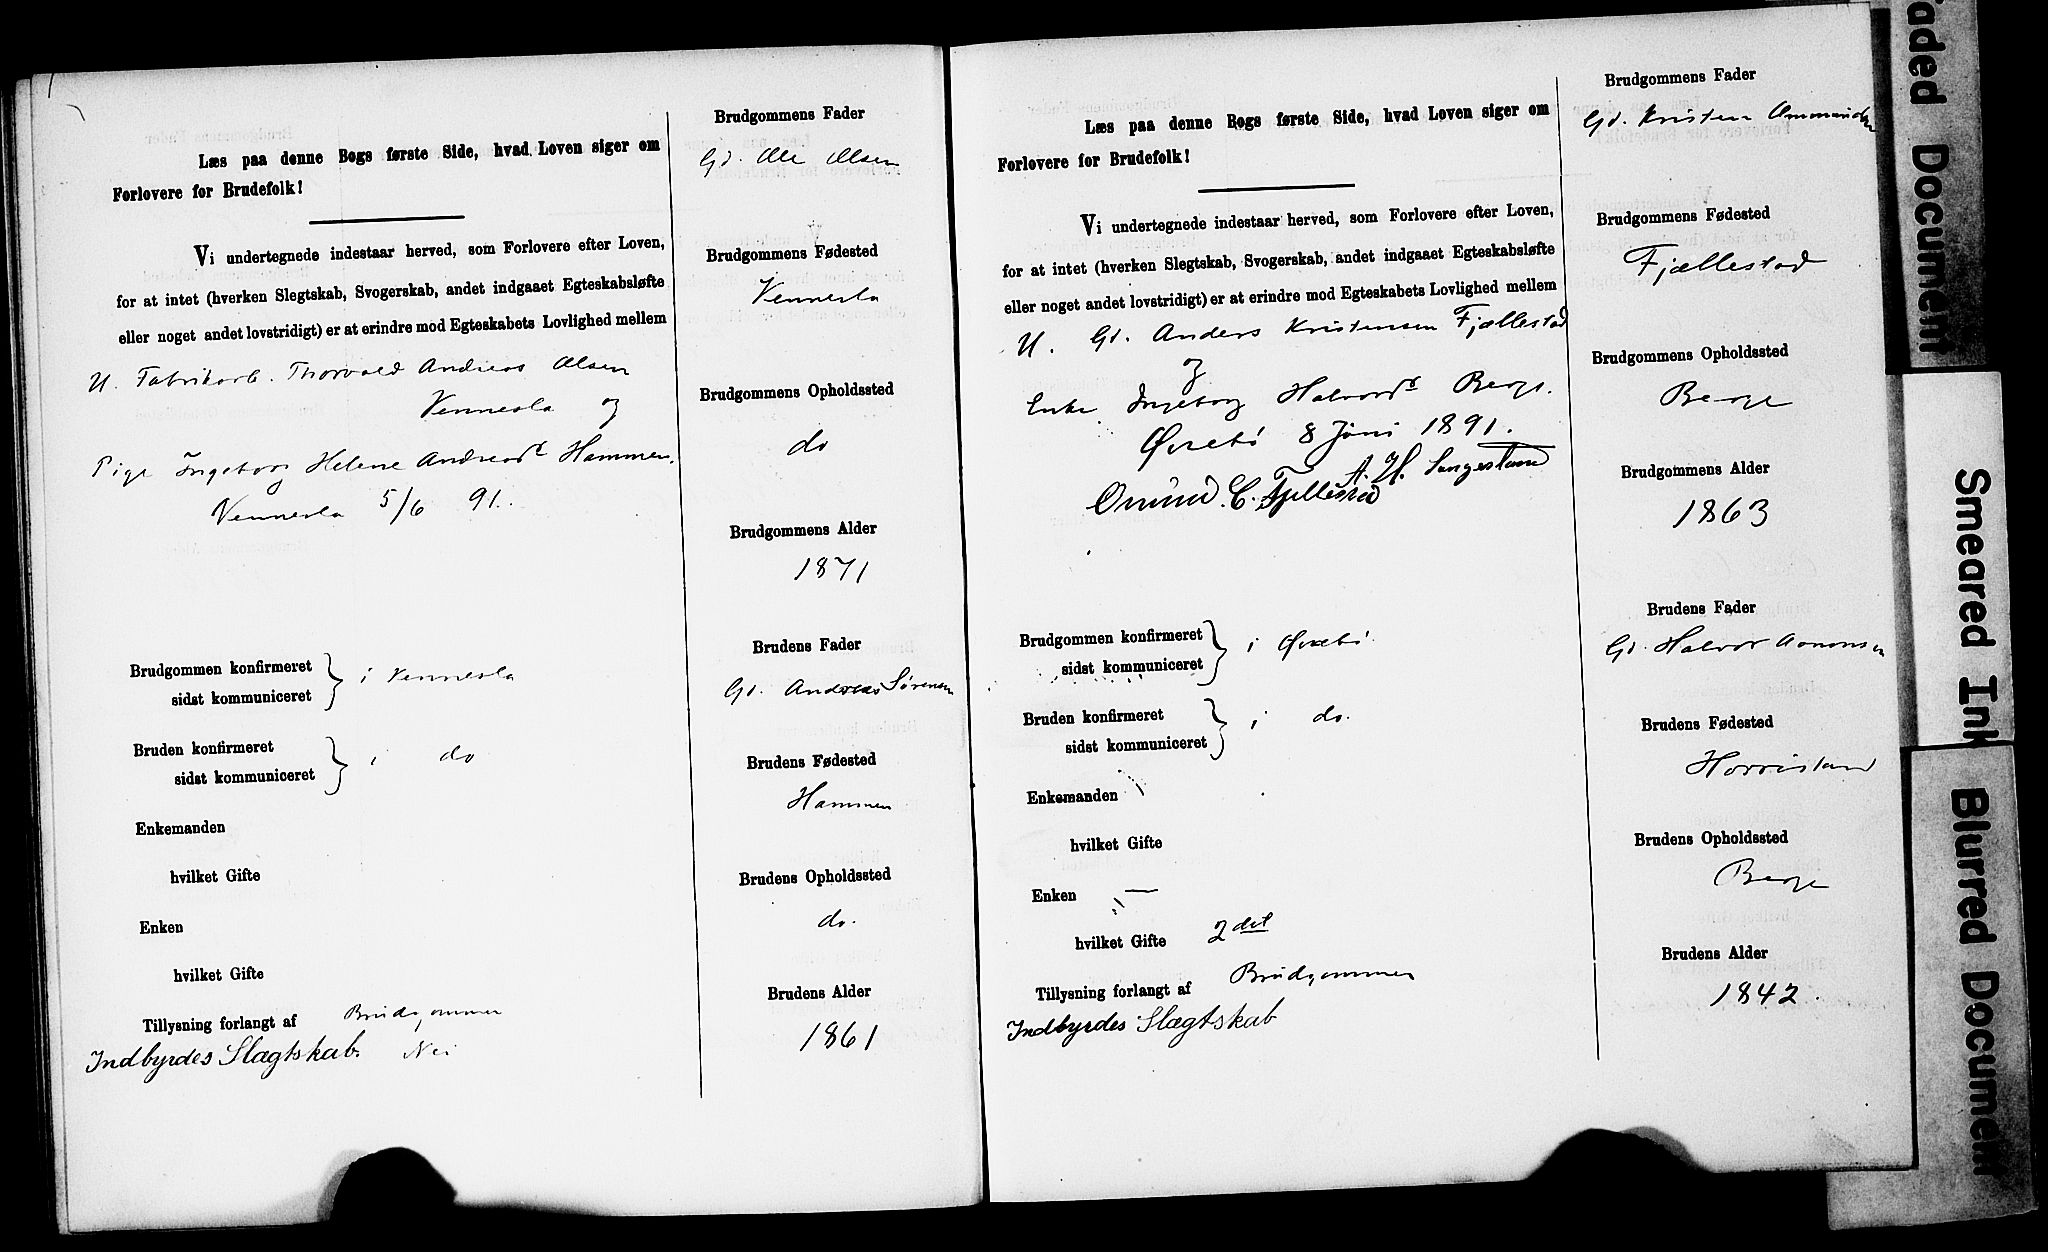 Læs paa denne Bogs første Side, hvad Loven siger om
Forlovere for Brudefolk!
Vi undertegnede indestaar herved, som Forlovere efter Loven,
for at intet (hverken Slegtskab, Svogerskab, andet indgaaet Egteskabsløfte
eller noget andet lovstridigt) er at erindre mod Egteskabets Lovlighed mellem
U. Fabrikarb. Thorvald Andreas Olsen
Vennesla og
Pige Ingeborg Helene Andreasd Hammen.
Vennesla 5/6 91.
Brudgommen konfirmeret
sidst kommuniceret
i Vennesla
Bruden konfirmeret
sidst kommuniceret
i do
Enkemanden
hvilket Gifte
Enken
hvilket Gifte
Tillysning forlangt af Brudgommen
Indbyrdes Slægtskab. Nei
Brudgommens Fader
Gd. Ole Olsen
Brudgommens Fødested
Vennesla
Brudgommens Opholdssted
do
Brudgommens Alder
1871
Brudens Fader
Gd. Andreas Sørensen
Brudens Fødested
Hammen
Brudens Opholdssted
do.
Brudens Alder
1861
Læs paa denne Bogs første Side, hvad Loven siger om
Forlovere for Brudefolk!
Vi undertegnede indestaar herved, som Forlovere efter Loven,
for at intet (hverken Slegtskab, Svogerskab, andet indgaaet Egteskabsløfte
eller noget andet lovstridigt) er at erindre mod Egteskabets Lovlighed mellem
U. Gd. Anders Kristensen Fjællestad
og
Enke Ingeborg Halvorsd Berge.
Øvrebø 8 Juni 1891.
A. H. Langeland
Omund C. Fjellestad
Brudgommen konfirmeret
sidst kommuniceret
i Øvrebø
Bruden konfirmeret
sidst kommuniceret
i do.
Enkemanden
hvilket Gifte
Enken —
hvilket Gifte 2det
Tillysning forlangt af Brudgommen
Indbyrdes Slægtskab
Brudgommens Fader
Gd. Kristen Ommundsen
Brudgommens Fødested
Fjællestad
Brudgommens Opholdssted
Berge
Brudgommens Alder
1863
Brudens Fader
Gd. Halvor Aanonsen
Brudens Fødested
Horrisland
Brudens Opholdssted
Berge
Brudens Alder
1842.
aded Document
Smeared Ink
Blurred Document